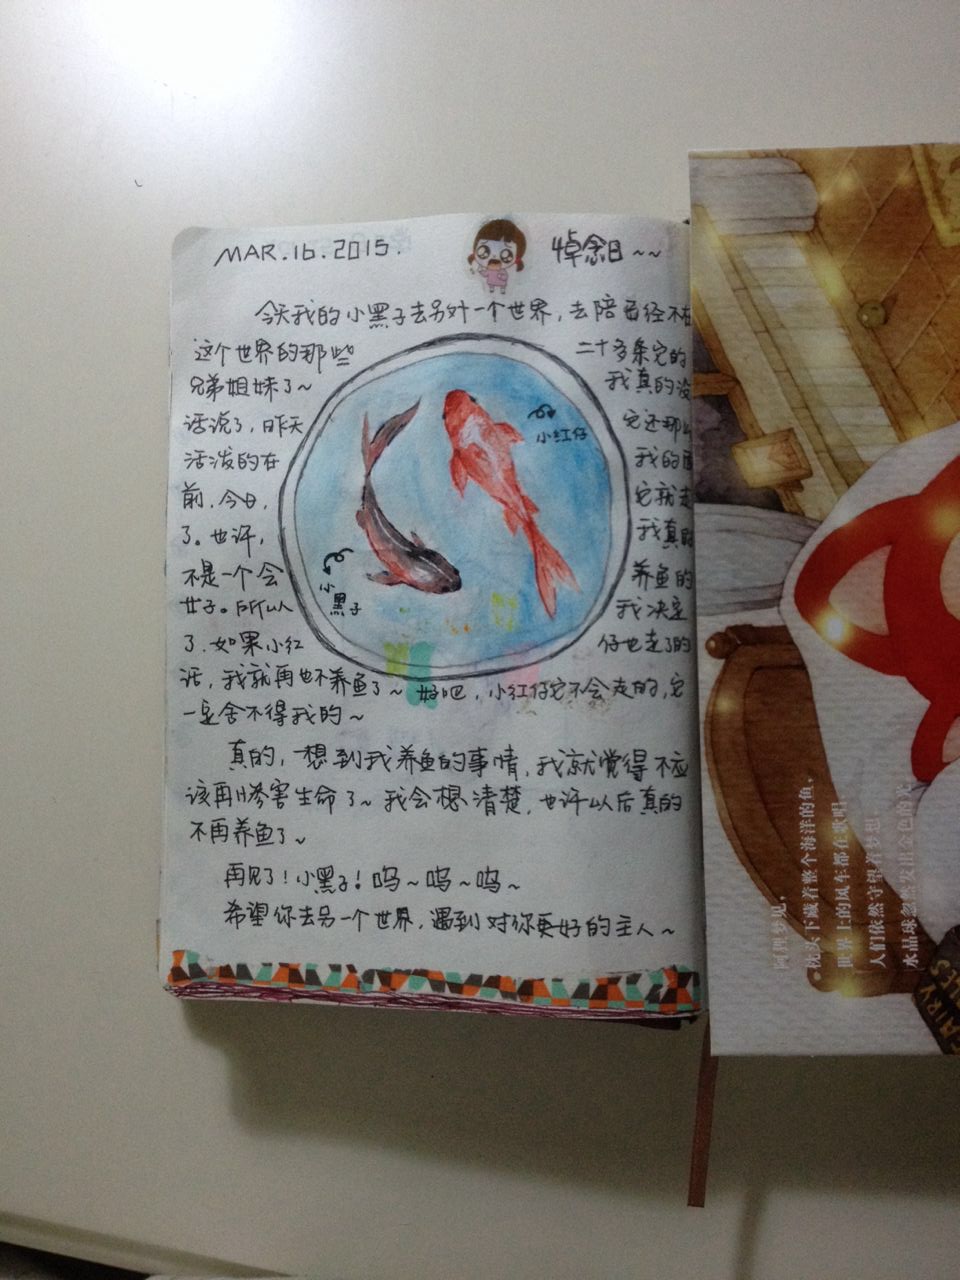 MAR.16.2015.
悼念日~~
今天我的小黑子去另外一个世界,去陪曾经不在
这个世界的那些 二十多条它的
兄弟姐妹了~ 我真的没
话说了,昨天 它还那么
活泼的在 我的面
前,今日, 它就走
了。也许, 我真的
不是一个会 养鱼的
女子。所以 我决定
了.如果小红 仔也走了的
话,我就再也不养鱼了~ 好吧,小红仔它不会走的,它
一定舍不得我的~
小红仔
小黑子
真的,一想到我养鱼的事情,我就觉得不应
该再惨害生命了~ 我会想清楚,也许以后真的
不再养鱼了~
再见了!小黑子!呜~呜~呜~
希望你去另一个世界,遇到对你更好的主人~
阿狸梦见,
枕头下藏着整个海洋的鱼,
世界上的风车都在歌唱
人们依然守望着梦想,
水晶球忽然发出金色的光
FAIRY